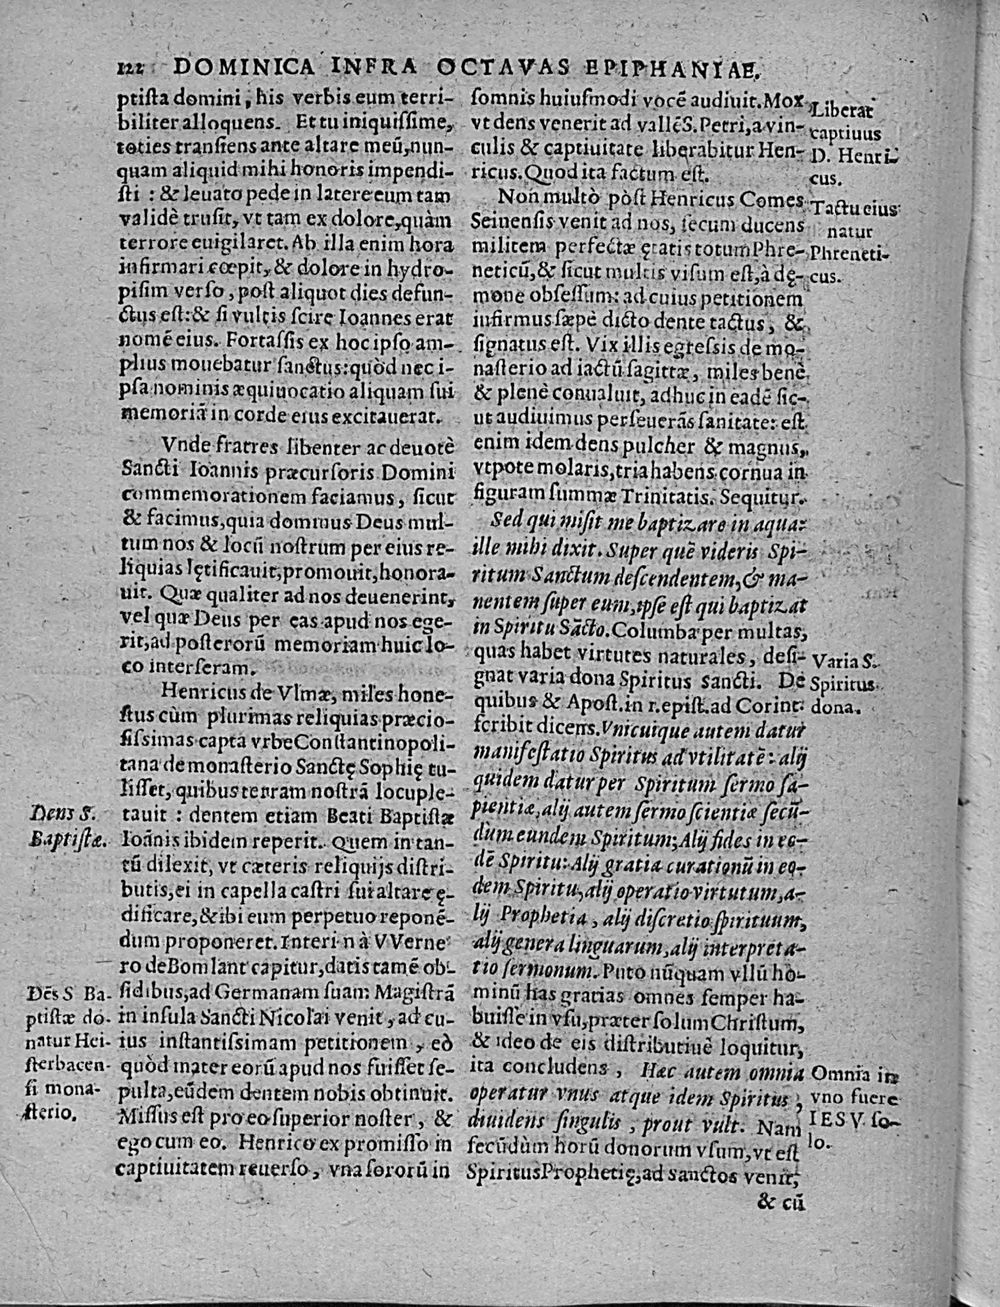 122 DOMINICA INFRA OCTAVAS EPIPHANIAE.
ptista domini, his verbis eum terri-
biliter alloquens. Et tu iniquissime,
toties transiens ante altare meũ, nun-
quam aliquid mihi honoris impendi-
sti : & leuato pede in latere eum tam
validè trusit, vt tam ex dolore, quàm
terrore euigilaret. Ab illa enim hora
infirmari cœpit, & dolore in hydro-
pisim verso, post aliquot dies defun-
ctus est: & si vultis scire Ioannes erat
nomẽ eius. Fortassis ex hoc ipso am-
plius mouebatur sanctus: quòd nec i-
psa nominis æquiuocatio aliquam sui
memoriã in corde eius excitauerat.
Vnde fratres libenter ac deuotè
Sancti Ioannis præcursoris Domini
commemorationem faciamus, sicut
& facimus, quia dominus Deus mul-
tum nos & locũ nostrum per eius re-
liquias lętificauit, promouit, honora-
uit. Quæ qualiter ad nos deuenerint,
vel quæ Deus per eas apud nos ege-
rit, ad posterorũ memoriam huic lo-
co interseram.
Henricus de Vlmæ, miles hone-
stus cùm plurimas reliquias præcio-
sissimas capta vrbe Constantinopoli-
tana de monasterio Sanctę Sophię tu-
lisset, quibus terram nostrã locuple-
tauit : dentem etiam Beati Baptistæ
Ioãnis ibidem reperit. Quem in tan-
tũ dilexit, vt cæteris reliquijs distri-
butis, ei in capella castri sui altare ę-
dificare, & ibi eum perpetuo reponẽ-
dum proponeret. Interim à VVerne
ro de Bomlant capitur, datis tamẽ ob-
sidibus, ad Germanam suam Magistrã
in insula Sancti Nicolai venit, ad cu-
ius instantissimam petitionem, eò
quòd mater eorũ apud nos fuisset se-
pulta, eũdem dentem nobis obtinuit.
Missus est pro eo superior noster, &
ego cum eo. Henrico ex promisso in
captiuitatem reuerso, vna sororũ in
Dens S.
Baptistæ.
Dẽs S Ba-
ptistæ do-
natur Hei-
sterbacen-
si mona-
sterio.
somnis huiusmodi vocẽ audiuit. Mox
vt dens venerit ad vallẽ S. Petri, a vin-
culis & captiuitate liberabitur Hen-
ricus. Quod ita factum est.
Non multò pòst Henricus Comes
Seinensis venit ad nos, secum ducens
militem perfectæ ętatis totum Phre-
neticũ, & sicut multis visum est, à dę-
mone obsessum: ad cuius petitionem
infirmus sæpè dicto dente tactus, &
signatus est. Vix illis egressis de mo-
nasterio ad iactũ sagittæ, miles benè
& plenè conualuit, adhuc in eadẽ sic-
ut audiuimus perseuerãs sanitate: est
enim idem dens pulcher & magnus,
vtpote molaris, tria habens cornua in
figuram summæ Trinitatis. Sequitur.
Sed qui misit me baptizare in aqua:
ille mihi dixit. Super quẽ videris Spi-
ritum Sanctum descendentem, & ma-
nentem super eum, ipse est qui baptizat
in Spiritu Sãcto. Columba per multas,
quas habet virtutes naturales, desi-
gnat varia dona Spiritus sancti. De
quibus & Apost. in 1. epist. ad Corint:
scribit dicens. Vnicuique autem datur
manifestatio Spiritus ad vtilitatẽ: alij
quidem datur per Spiritum sermo sa-
pientiæ, alij autem sermo scientiæ secũ-
dum eundem Spiritum; Alij fides in eo-
dẽ Spiritu: Alij gratia curationũ in eo-
dem Spiritu, alij operatio virtutum, a-
lij Prophetia, alij discretio spirituum,
alij genera linguarum, alij interpreta-
tio sermonum. Puto nũquam vllũ ho-
minũ has gratias omnes semper ha-
buisse in vsu, præter solum Christum,
& ideo de eis distributiuè loquitur,
ita concludens, Hæc autem omnia
operatur vnus atque idem Spiritus,
diuidens singulis, prout vult. Nam
secũdùm horũ donorum vsum, vt est
Spiritus Prophetię, ad sanctos venit,
& cũ
Liberat
captiuus
D. Henri-
cus.
Tactu eius
natur
Phreneti-
cus.
Varia S.
Spiritus
dona.
Omnia in
vno fuere
IESV so-
lo.